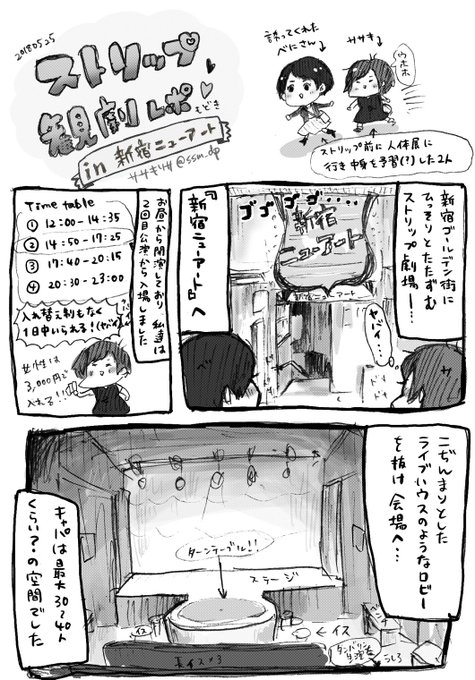 2018.05.25
ストリップ
観劇レポ
もどき
in 新宿ニューアート
ササキササ @ssm_dp
誘ってくれた
べにさん
ササキ
ウホホ
ストリップ前に人体展に
行き中身を予習(?)した2人
新宿ゴールデン街に
ひっそりとたたずむ
ストリップ劇場——!
ゴゴゴゴ・・・・
新宿
ニューアート
新宿ニューアート
ヤバイ・・・
ドキ
ドキ
『新宿ニューアート』へ
お昼から開演しており私達は
2回目公演から入場しました
Time table
① 12:00-14:35
② 14:50-17:25
③ 17:40-20:15
④ 20:30-23:00
入れ替え制もなく
1日中いられる!(ヤバイ)
女性は
3,000円で
入れる!!
こぢんまりとした
ライブハウスのようなロビー
を抜け会場へ・・・
ターンテーブル!!
ステージ
イス
長イス×3
タンバリン
うしろ
キャパは最大30~40人
くらい?の空間でした